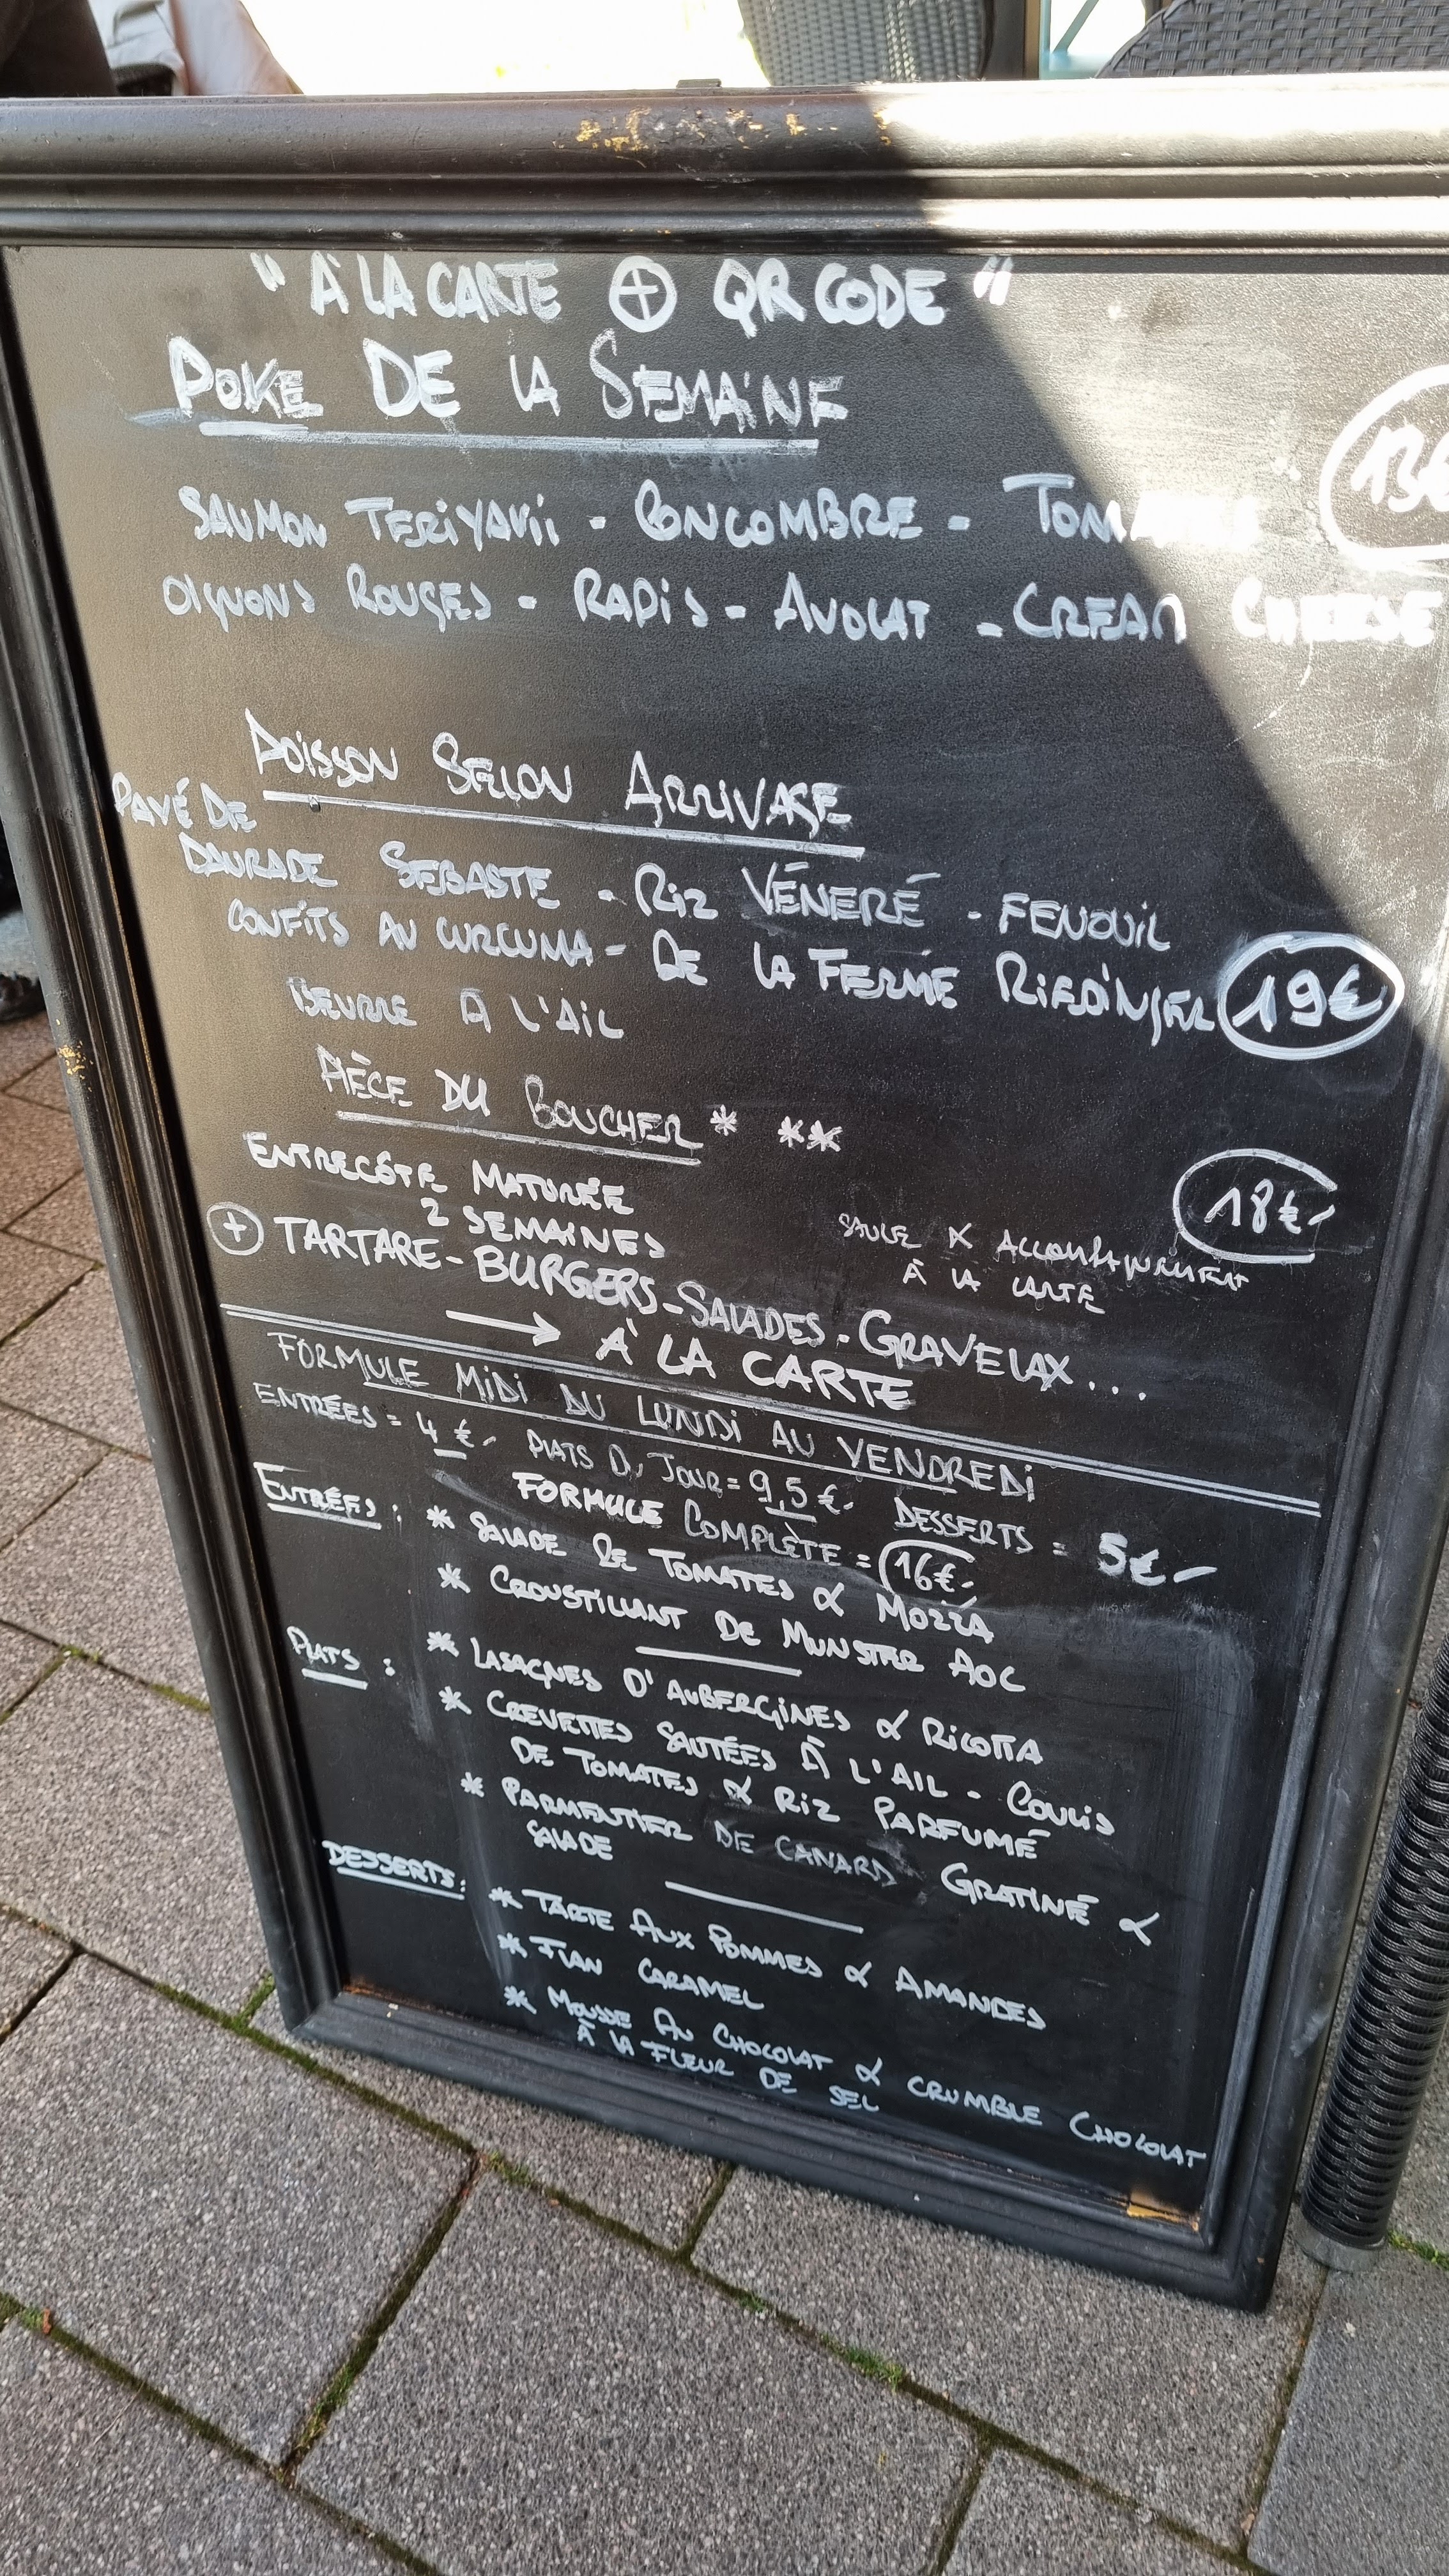 " À LA CARTE ⊕ QR CODE "
POKE DE LA SEMAINE
SAUMON TERIYAKII - CONCOMBRE - TOMATES
13€
OIGNONS ROUGES - RADIS - AVOCAT - CREAM CHEESE
POISSON SELON ARRIVAGE
PAVÉ DE
DAURADE SEBASTE - RIZ VÉNERÉ - FENOUIL
CONFITS AU CURCUMA - DE LA FERME RIEDINGER 19€
BEURRE À L'AIL
PIÈCE DU BOUCHER * **
ENTRECÔTE MATURÉE
2 SEMAINES
18€-
SAUCE & ACCOMPAGNEMENT
À LA CARTE
⊕ TARTARE - BURGERS - SALADES - GRAVELAX...
→ À LA CARTE
FORMULE MIDI DU LUNDI AU VENDREDI
ENTRÉES = 4 €- PLATS DU JOUR = 9,5 €- DESSERTS = 5€-
FORMULE COMPLÈTE = 16€-
ENTRÉES : * SALADE DE TOMATES & MOZZA
* CROUSTILLANT DE MUNSTER AOC
PLATS : * LASAGNES D'AUBERGINES & RICOTTA
* CREVETTES SAUTÉES À L'AIL - COULIS
DE TOMATES & RIZ PARFUMÉ
* PARMENTIER DE CANARD GRATINÉ &
SALADE
DESSERTS: * TARTE AUX POMMES & AMANDES
* FLAN CARAMEL
* MOUSSE AU CHOCOLAT & CRUMBLE CHOCOLAT
À LA FLEUR DE SEL